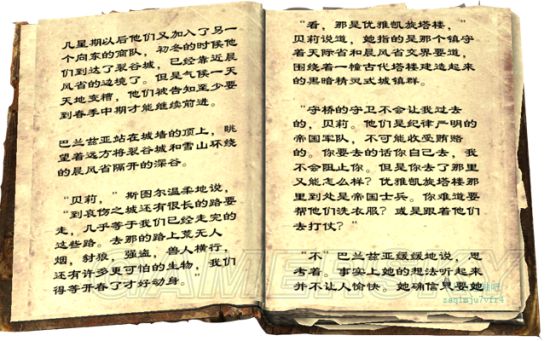 几星期以后他们又加入了另一
个向东的商队，初冬的时候他
们到达了裂谷城，已经靠近晨
风省的边境了。但是气候一天
天地变糟，他们被告知至少要
到春季中期才能继续前进。
巴兰兹亚站在城墙的顶上，眺
望着远方将裂谷城和雪山环绕
的晨风省隔开的深谷。
“贝莉，”斯图尔温柔地说，
“到哀伤之城还有很长的路要
走，几乎等于我们已经走完的
这些路。去那的路上荒无人
烟，豺狼，强盗，兽人横行，
还有许多更可怕的生物，我们
得等开春了才好动身。
“看，那是优雅凯旋塔楼，”
贝莉说道，她指的是那个镇守
着天际省和晨风省交界要道，
围绕着一幢古代塔楼建造起来
的黑暗精灵式城镇群。
“守桥的守卫不会让我过去
的，贝莉。他们是纪律严明的
帝国军队，不可能收受贿赂
的。你要去的话你自己去，我
不会阻止你。但是你去了那里
又能怎么样？优雅凯旋塔楼那
里到处是帝国士兵。你难道要
帮他们洗衣服？或是跟着他们
去打仗？”
“不”巴兰兹亚缓缓地说，思
考着。事实上她的想法听起来
并不让人愉快。她确信只要她
GAMERSKY
zaq1mju7vfr4